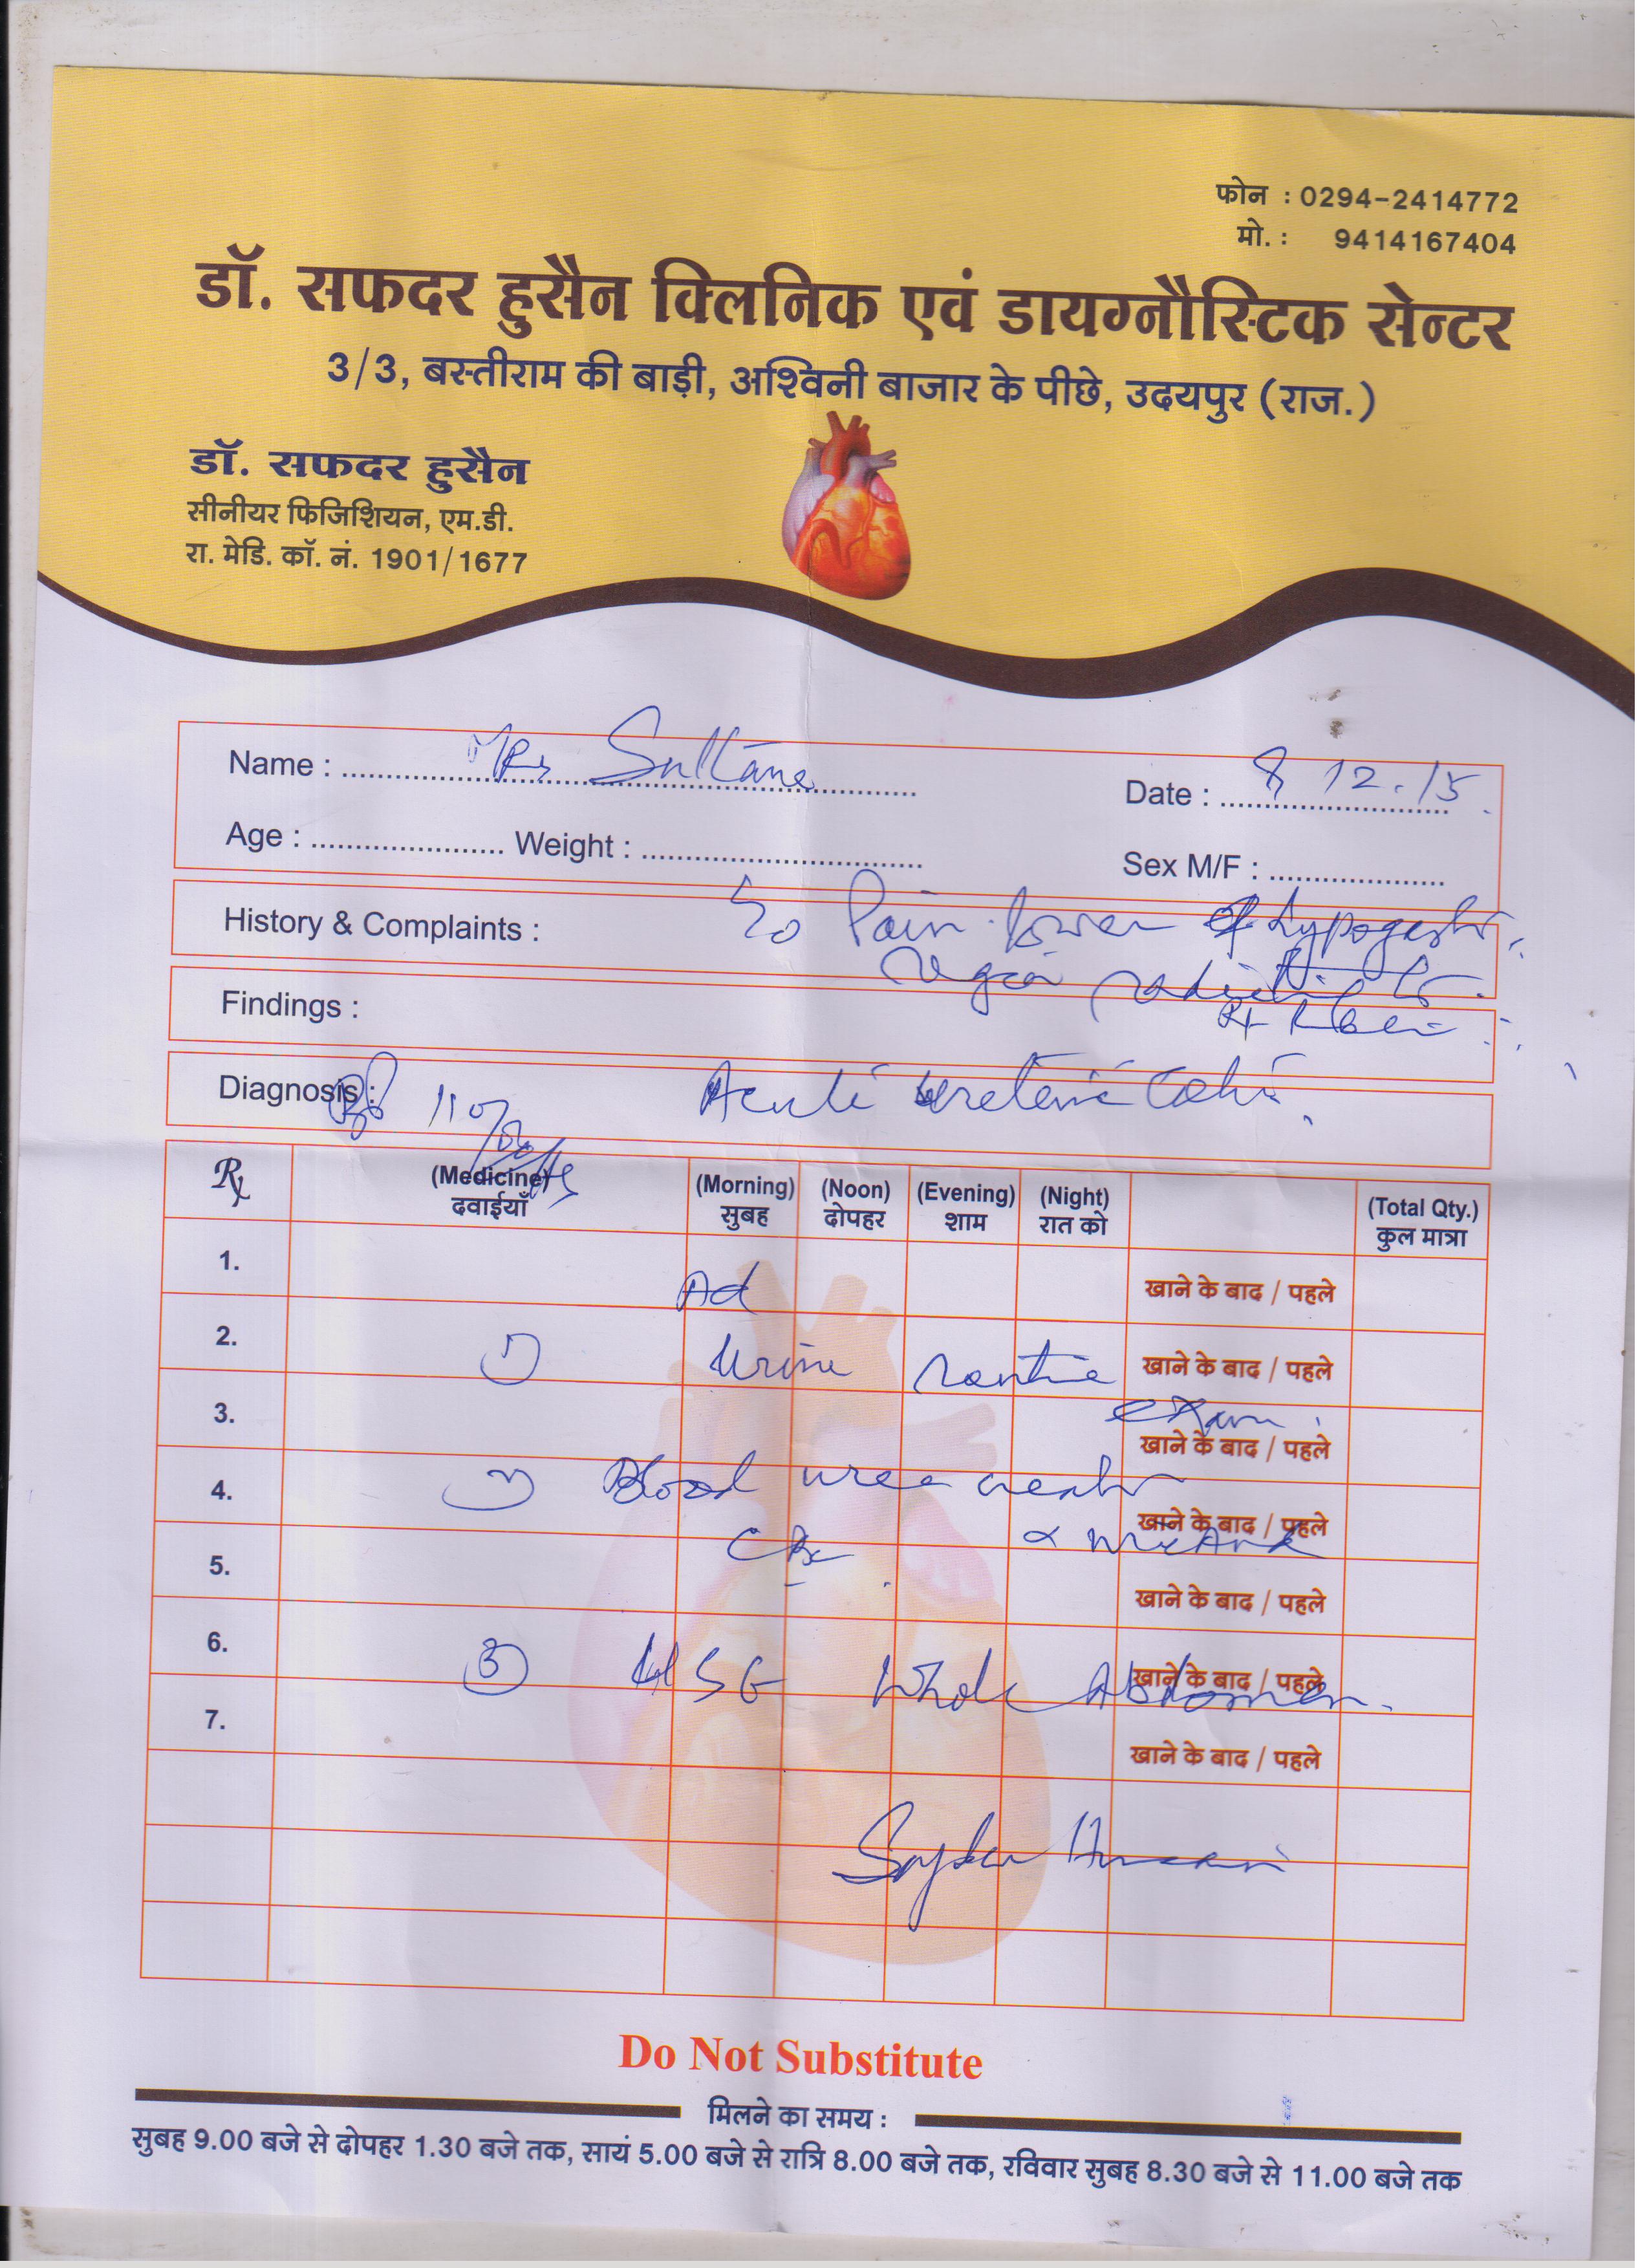 फोन : 0294-2414772
मो. : 9414167404
डॉ. सफदर हुसैन क्लिनिक एवं डायग्नौस्टिक सेन्टर
3/3, बस्तीराम की बाड़ी, अश्विनी बाजार के पीछे, उदयपुर (राज.)
डॉ. सफदर हुसैन
सीनीयर फिजिशियन, एम.डी.
रा. मेडि. कॉ. नं. 1901/1677
Name : Mrs Sultana
Date : 8 12.15.
Age : Weight :
Sex M/F :
History & Complaints : Pain lower of hypogastr.
region radiating to
Findings :
Diagnosis : Acute ureteric Colic.
110/
Rx (Medicine) (Morning) (Noon) (Evening) (Night) (Total Qty.)
दवाईयाँ सुबह दोपहर शाम रात को कुल मात्रा
1. खाने के बाद / पहले
Ad
2. खाने के बाद / पहले
1 Urine routine
exam.
3. खाने के बाद / पहले
4. खाने के बाद / पहले
Blood urea creatn
CBC
5. खाने के बाद / पहले
6. खाने के बाद / पहले
3 USG Whole Abdomen.
7. खाने के बाद / पहले
Safdar Hussain
Do Not Substitute
मिलने का समय :
सुबह 9.00 बजे से दोपहर 1.30 बजे तक, सायं 5.00 बजे से रात्रि 8.00 बजे तक, रविवार सुबह 8.30 बजे से 11.00 बजे तक